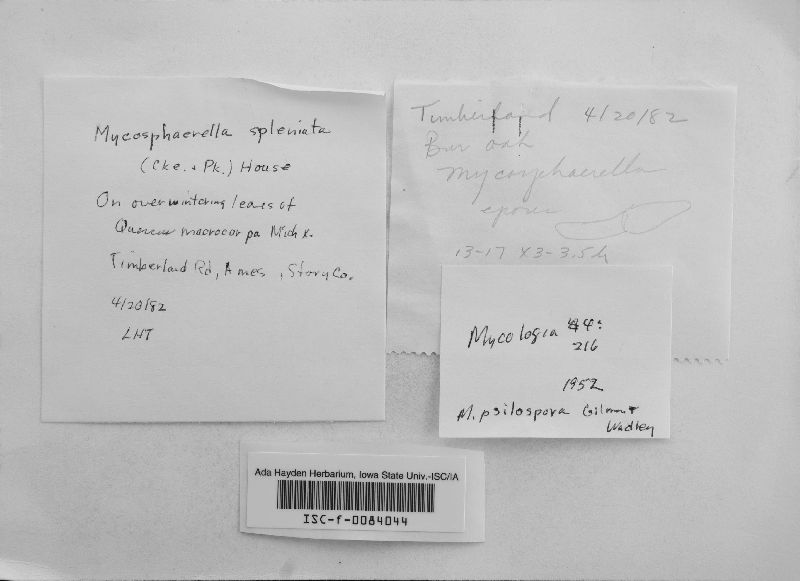 Mycosphaerella spleniata
(Cke. + Pk.) House
On overwintering leaves of
Quercus macrocarpa Michx.
Timberland Rd, Ames, Story Co.
4/20/82
LHT
Timberland 4/20/82
Bur oak
Mycosphaerella
spores
13-17 x 3-3.5 µ
Mycologia 44:
216
1952
M. psilospora Gilman &
Wadley
Ada Hayden Herbarium, Iowa State Univ.-ISC/IA
ISC-f-0084044